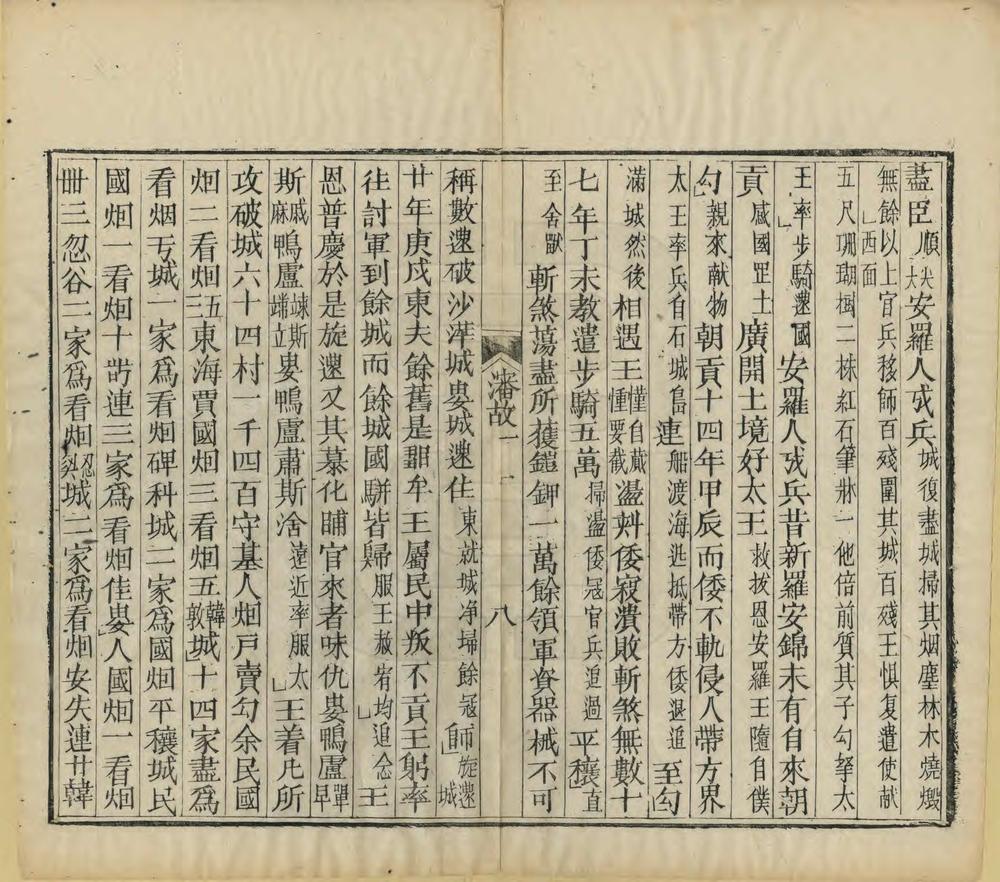 盡臣順尖大安羅人戍兵城復盡城掃其烟塵林木燒燬
無餘以上官兵移師百殘圍其城百殘王惧复遣使献」西面
五尺珊瑚樹二株紅石筆牀一他倍前質其子勾拏太
王率」步騎還國安羅人戍兵昔新羅安錦未有自來朝
貢感國罡土廣開土境好太王救拔恩安羅王隨自僕
勾」親來献物朝貢十四年甲辰而倭不軌侵入帶方界
太王率兵自石城島連船渡海迸抵帶方倭退追至勾」
滿城然後相遇王懂自蕆慟要截盪㓨倭寇潰敗斬煞無數十
七年丁未教遣步騎五萬掃盪倭寇官兵追過平穰」直
至舍獸斬煞蕩盡所獲鎧鉀一萬餘領軍資器械不可
瀋故一 八
稱數還破沙溝城婁城還住東就城净掃餘寇師」旋還城
廿年庚戍東夫餘舊是鄒牟王屬民中叛不貢王躬率
往討軍到餘城而餘城國駢皆歸服王赦宥均追念」王
恩普慶於是旋還又其慕化睰官來者味仇婁鴨盧單早
斯戚麻鴨盧㟨斯婁鴨盧肅斯舍遠近率服太」王着凡所
攻破城六十四村一千四百守墓人烟戶賣勾余民國
烟二看烟三五東海賈國烟三看烟五韓敦城」十四家盡爲
看烟亐城一家爲看烟碑科城二家爲國烟平穰城民
國烟一看烟十訾連三家爲看烟佳婁」人國烟一看烟
卌三忽谷二家爲看烟忍城二家爲看烟安失連廿韓